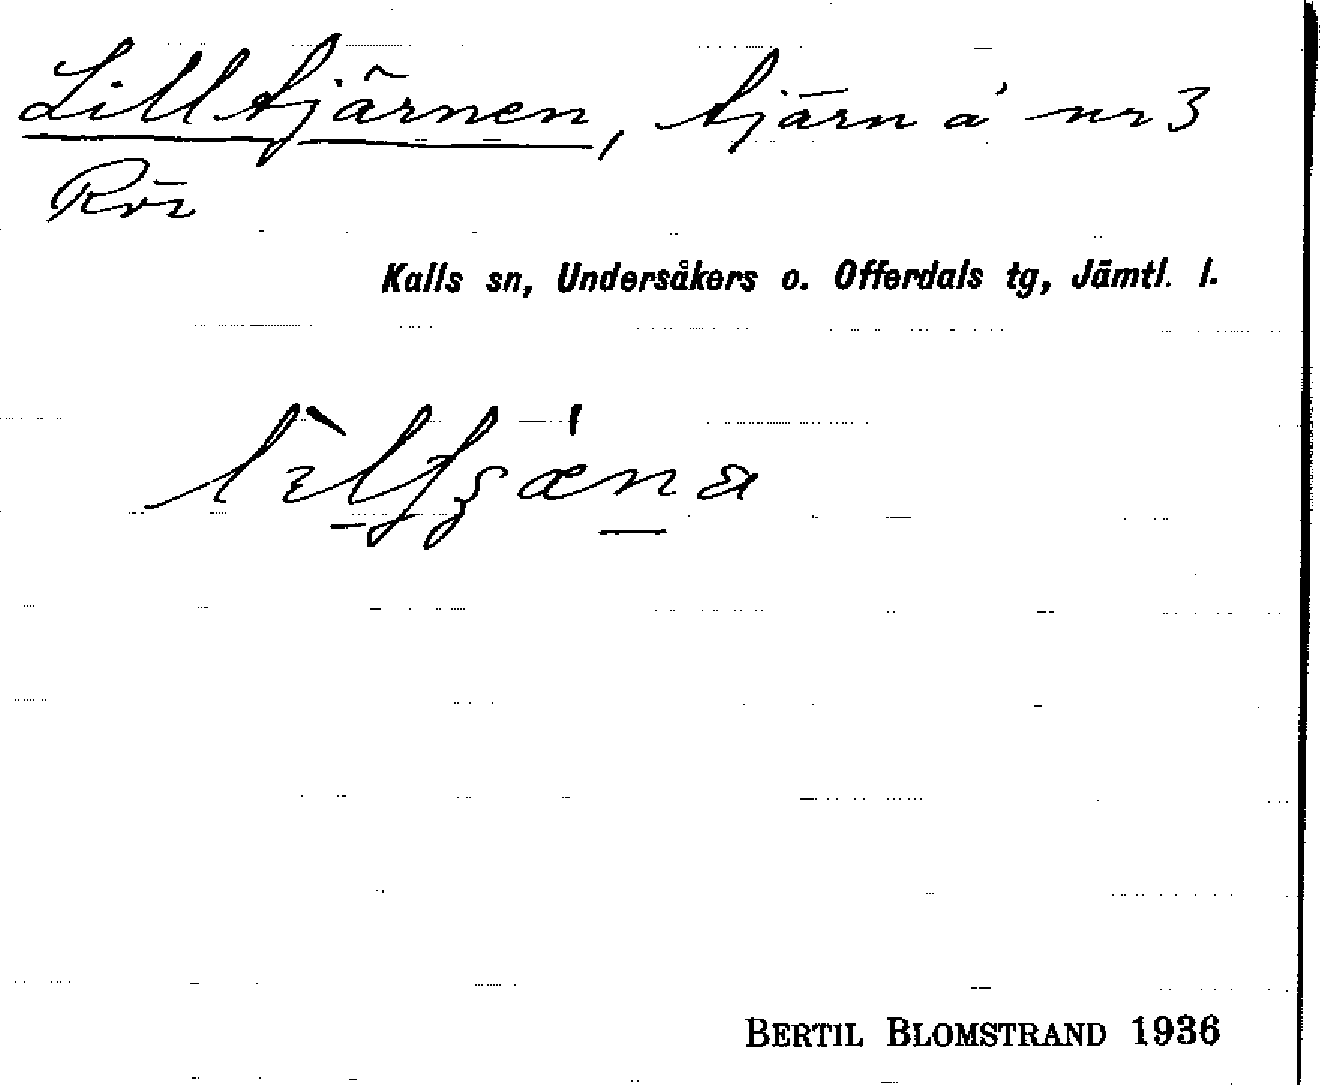 Lilltjärnen, tjärn å nr 3
Rör
Kalls sn, Undersåkers o. Offerdals tg, Jämtl. l.
BERTIL BLOMSTRAND 1936